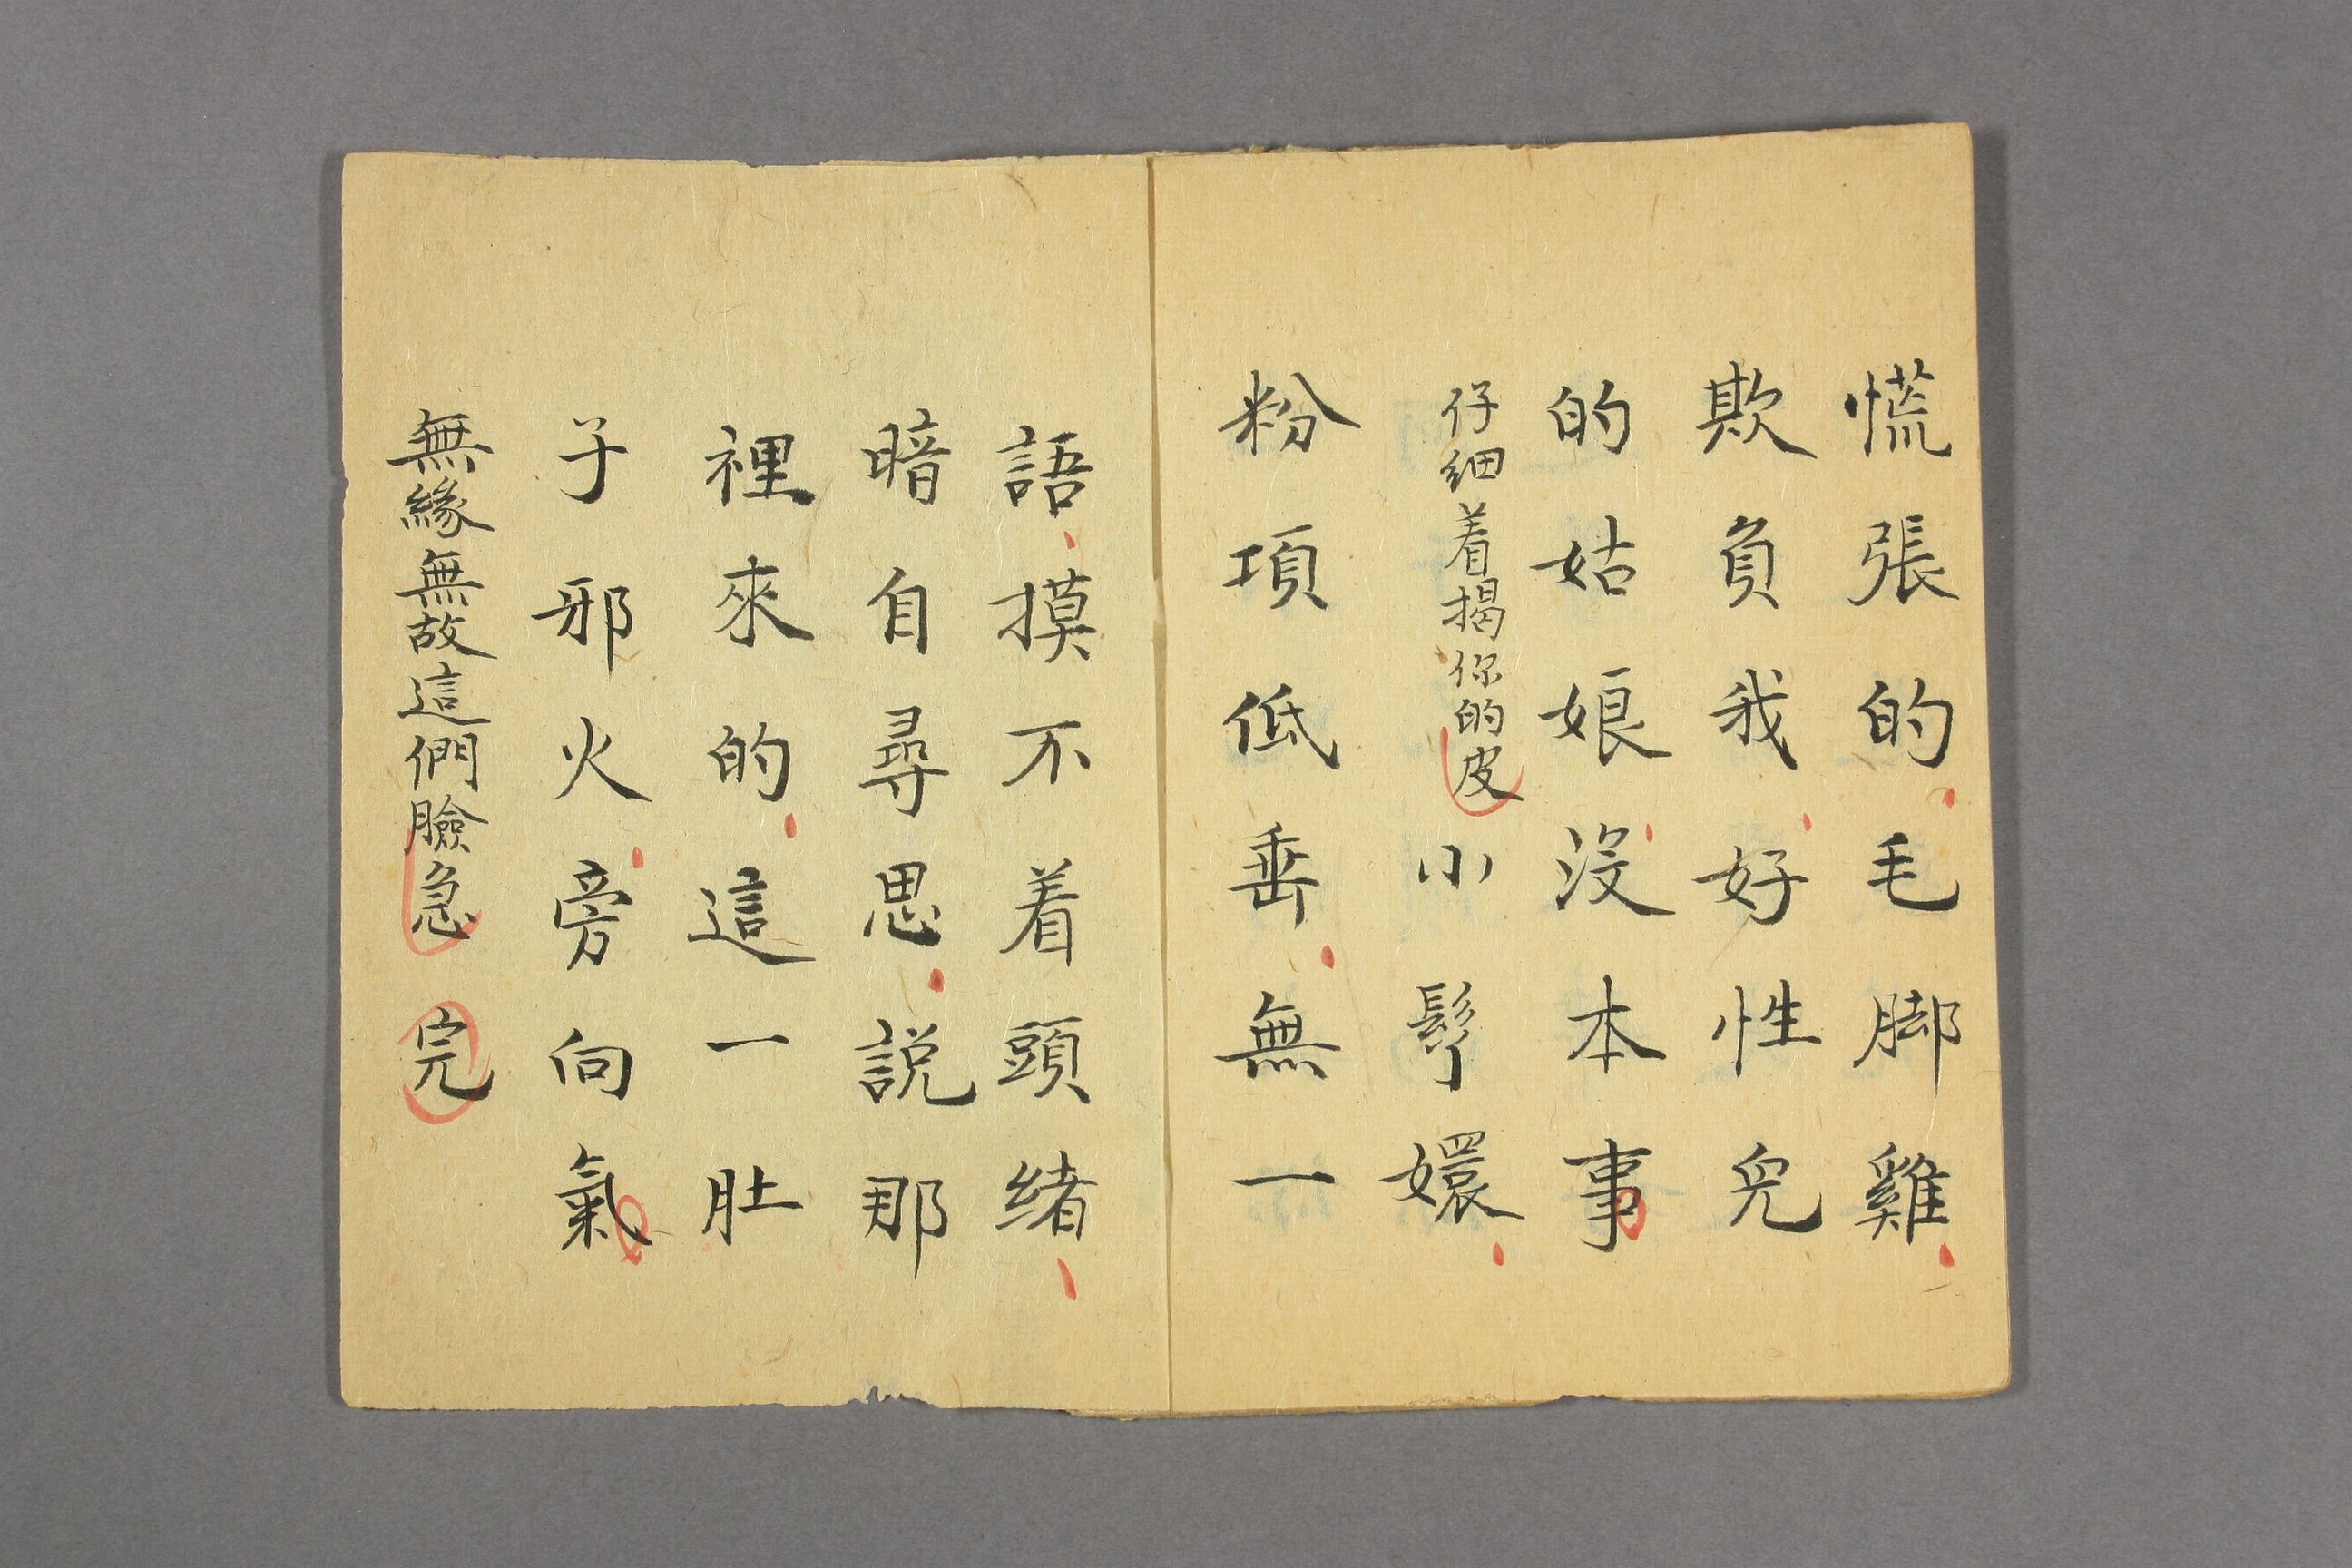 慌張的毛脚雞
欺負我好性兒
的姑娘沒本事
仔細着揭你的皮小髩嬛
粉項低垂無一
語摸不着頭緒
暗自尋思說那
裡來的這一肚
子邪火旁向氣
無緣無故這們臉急 完